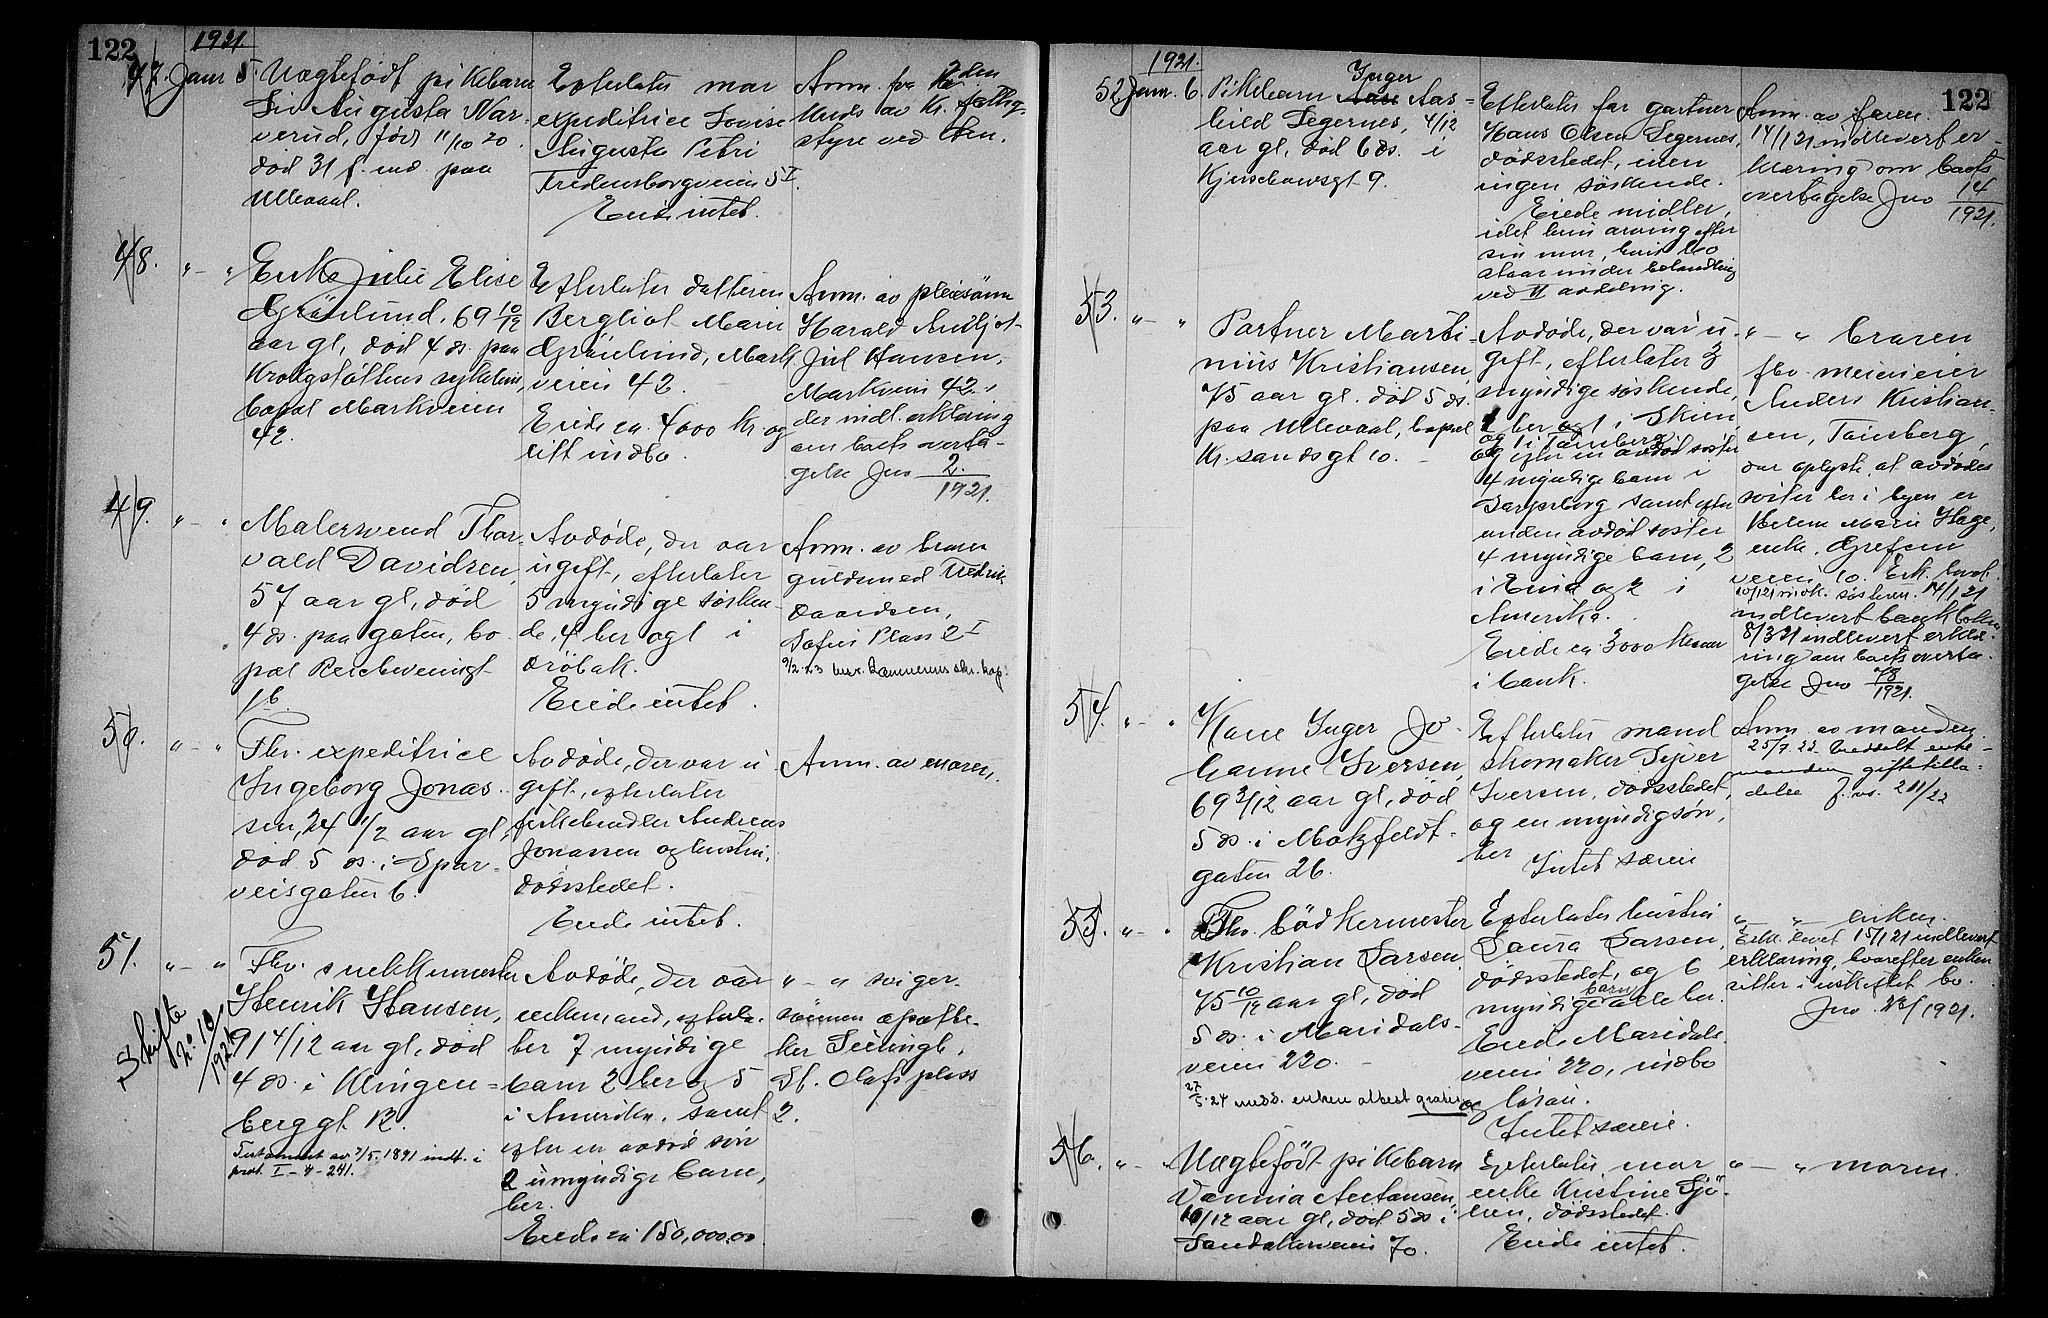 122
1921
47. Janr 5. Uægtefødt pikebarn
Siv Augusta Nar-
verud, född 11/10 20
död 31 f. md. paa
Ullevaal.
Efterlater mor
expeditrice Lovise
Augusta Petri
Fredensborgveien 5 I.
Eiede intet.
Anm. fra 2den
Kr. fattig-
styre ved
48. " — " Enke Julie Elise
Grönlund, 69 10/12
aar gl, död 4 ds. paa
Krohgstøttens sykehus,
bopæl Markveien
42.
Efterlater datteren
Bergliot Marie
Grönlund, Mark
veien 42.
Eiede ca. 4000 kr og
litt indbo.
Anm. av pleiesönn
Harald
Hansen,
Markveien 42.,
der indl. erklæring
om boets overta-
gelse Jno 2/1921.
49. " — " Malersvend Thor-
vald Davidsen,
57 aar gl, död
4 ds. paa gaten, bo-
pæl Reichweinsgt
1b.
Avdöde, der var
ugift, efterlater
5 myndige sösken-
de, 4 her og 1 i
Dröbak.
Eiede intet.
Anm. av broren
guldsmed Fredrik
Davidsen,
Sofies Plass 2 I
50. " — " Fhv. expeditrice
Ingeborg Jonas-
sen, 24 1/2 aar gl,
död 5 ds. i Spur-
veisgaten 6.
Avdöde, der var u-
gift, efterlater
fiskehandler Andreas
Jonassen og hustru,
dödsstedet.
Eiede intet.
Anm. av moren.
51. " — " Fhv. snekkermester
Henrik Hansen,
91 4/12 aar gl, död
4 ds. i Klingen-
berggt 12.
Testament av 7/5.1891 indt. i
prot. I - 4 - 241.
Skifte
No. 10/1921
Avdöde, der var
enkemand, efterla-
ter 7 myndige
barn 2 her og 5
i Amerika, samt
efter en avdöd sön
2 umyndige barn,
her.
Eiede ca 150,000.00
" — " sviger-
sönnen apothe-
ker
St. Olafs plass
2.
122
1921.
52. Janr. 6. Pikebarn Aase Inger Aas-
hild Segernes, 4/12
aar gl, död 6 ds. i
Kjerschowsgt 9.
Efterlater far gartner
Hans Olsen Segernes,
dödsstedet, men
ingen söskende.
Eiede midler,
idet hun arving efter
sin mor, hvis bo
staar under behandling
ved II avdeling.
Anm. av faren.
14/1 21 indlevert er-
klæring om boets
overtagelse Jno 14/1921.
53. " — " Partner Marti-
nius Kristiansen,
75 aar gl. död 5 ds.
paa Ullevaal, bopæl
Kr.sandsgt 10.
Avdöde, der var u-
gift, efterlater 3
myndige söskende,
1 her og 1 i Skien,
og 1 i Tönsberg
og efter en avdöd söster
4 myndige barn i
Sarpsborg samt efter
anden avdöd söster
4 myndige barn, 2
i og 2 i
Amerika.
Eiede ca. 3000 kroner
i bank.
" — " broren
fhv. meierieier
Anders Kristian-
sen, Tönsberg,
der oplyste at avdödes
söster her i byen er
Helene Marie Hage,
enke, Grefsen
veien 10. Erk. bevil.
10/1 21 indk. sösteren. 14/1 21
indlevert bankboken
8/3 21 indlevert erklæ-
ring om boets overta-
gelse Jno 78/1921.
54. " — " Kone Inger Jo-
hanne Iversen,
69 3/12 aar gl, död
5 ds. i Motzfeldt-
gaten 26.
Efterlater mand
skomaker Syver
Iversen, dödsstedet,
og en myndig sön,
her
Intet særeie
Anm. av manden.
25/7. 22. meddelt enke-
manden giftetilla-
delse J. no. 211/22
55. " — " Fhv. bödkermester
Kristian Larsen,
75 10/12 aar gl, död
5 ds. i Maridals-
veien 220.
27/5-24 medd. enken attest gratis
Efterlater hustru
Laura Larsen,
dödsstedet, og 6
myndige barn alle her.
Eiede Maridals-
veien 220, indbo
og lösöre.
Intet særeie.
" — " enken.
Erkl. bevil. 15/1 21 indlevert
erklæring, hvorefter enken
sitter i uskiftet bo.
Jno. 23/1921.
56. " — " Uægtefödt pikebarn
Vannia Antonsen,
10/12 aar gl, död 5 ds i
Sandakerveien 70.
Efterlater mor
enke Kristine Sjö-
lien, dödsstedet.
Eiede intet.
" — " moren.